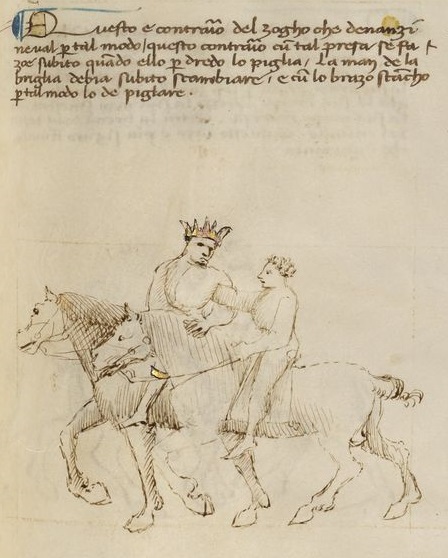 Questo e contrãio del zogho che denanzi
ne val p tal modo / questo contrãio cũ tal presa se fa /
zoe subito quãdo ello p dredo lo piglia / La man de la
briglia debia subito scambiare / e cũ lo brazo stãcho
p tal modo lo de pigliare .